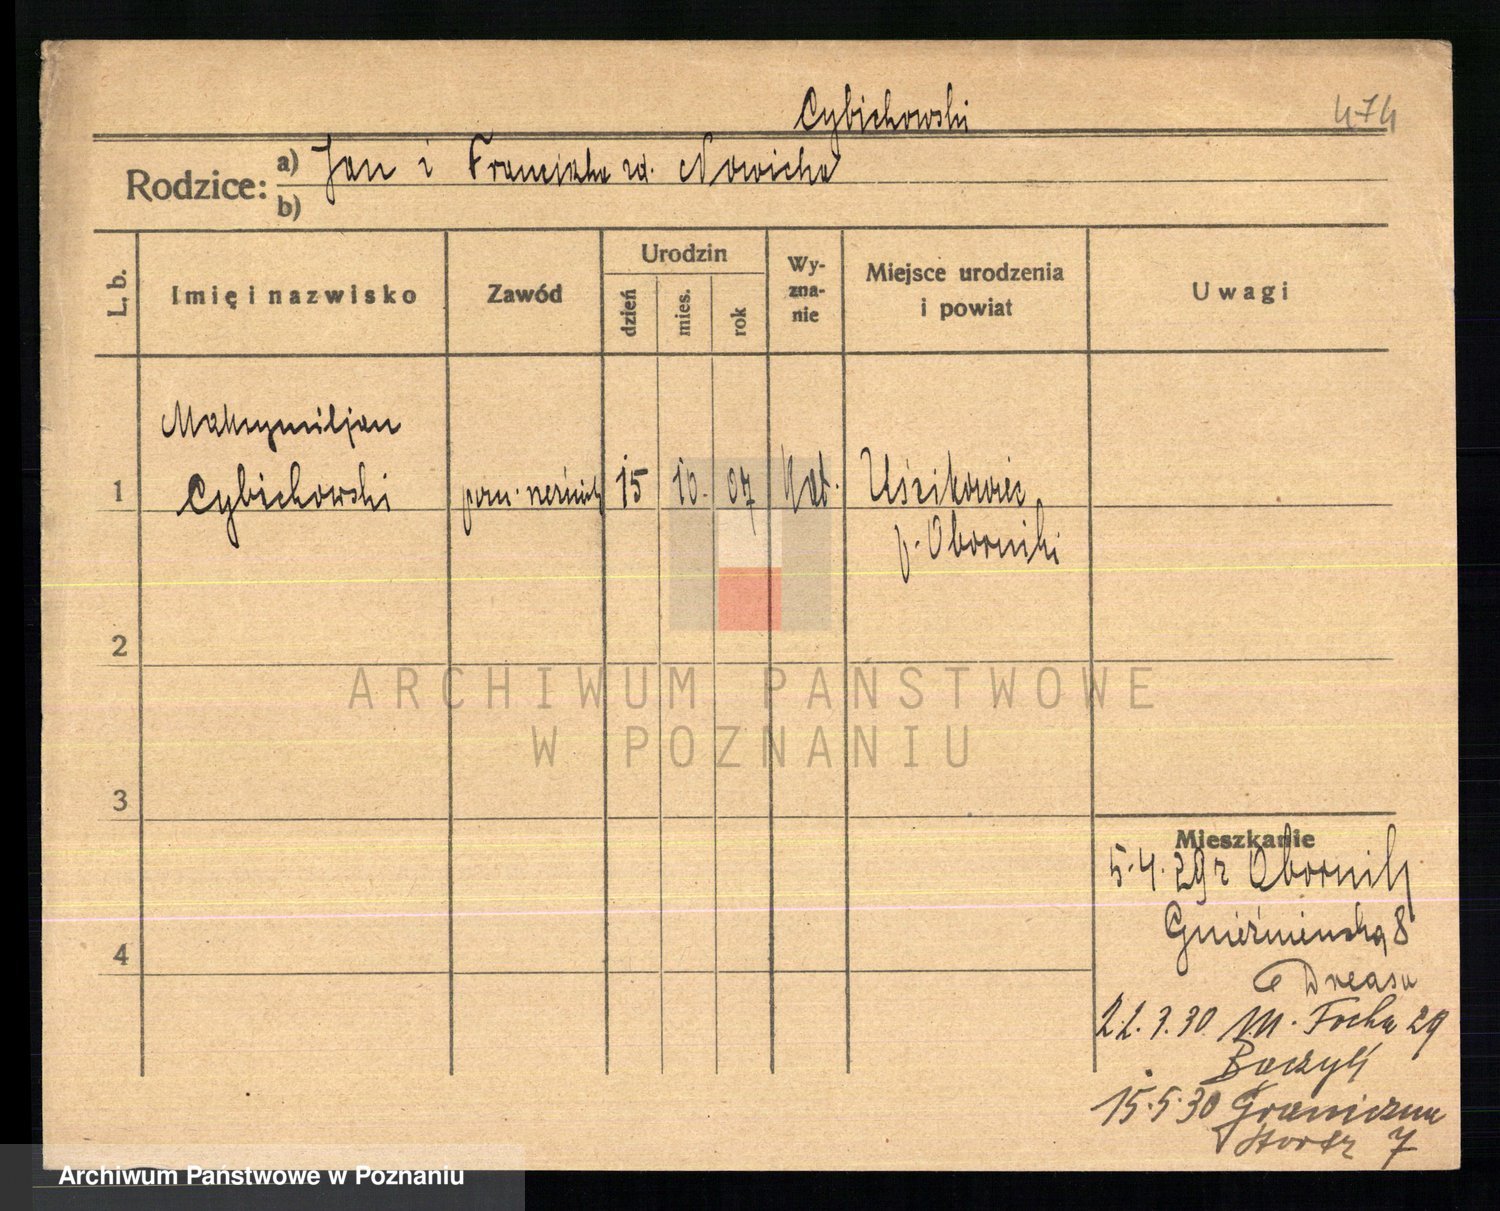 Cybichowski
474
Rodzice: a) Jan i Franciszka zd. Nowicka
b)
L. b.
Imię i nazwisko
Zawód
Urodzin
dzień
mies.
rok
Wy-
zna-
nie
Miejsce urodzenia
i powiat
Uwagi
Maksymiljan
1 Cybichowski
15 10. 07 Kat.
Uścikowiec
p. Oborniki
2
ARCHIWUM PAŃSTWOWE
W POZNANIU
3
Mieszkanie
5.4.29 r Oborniki
Gnieźnieńska 8
4
22.3.30. M. Focha 29
15.5.30 Graniczna
7
Archiwum Państwowe w Poznaniu